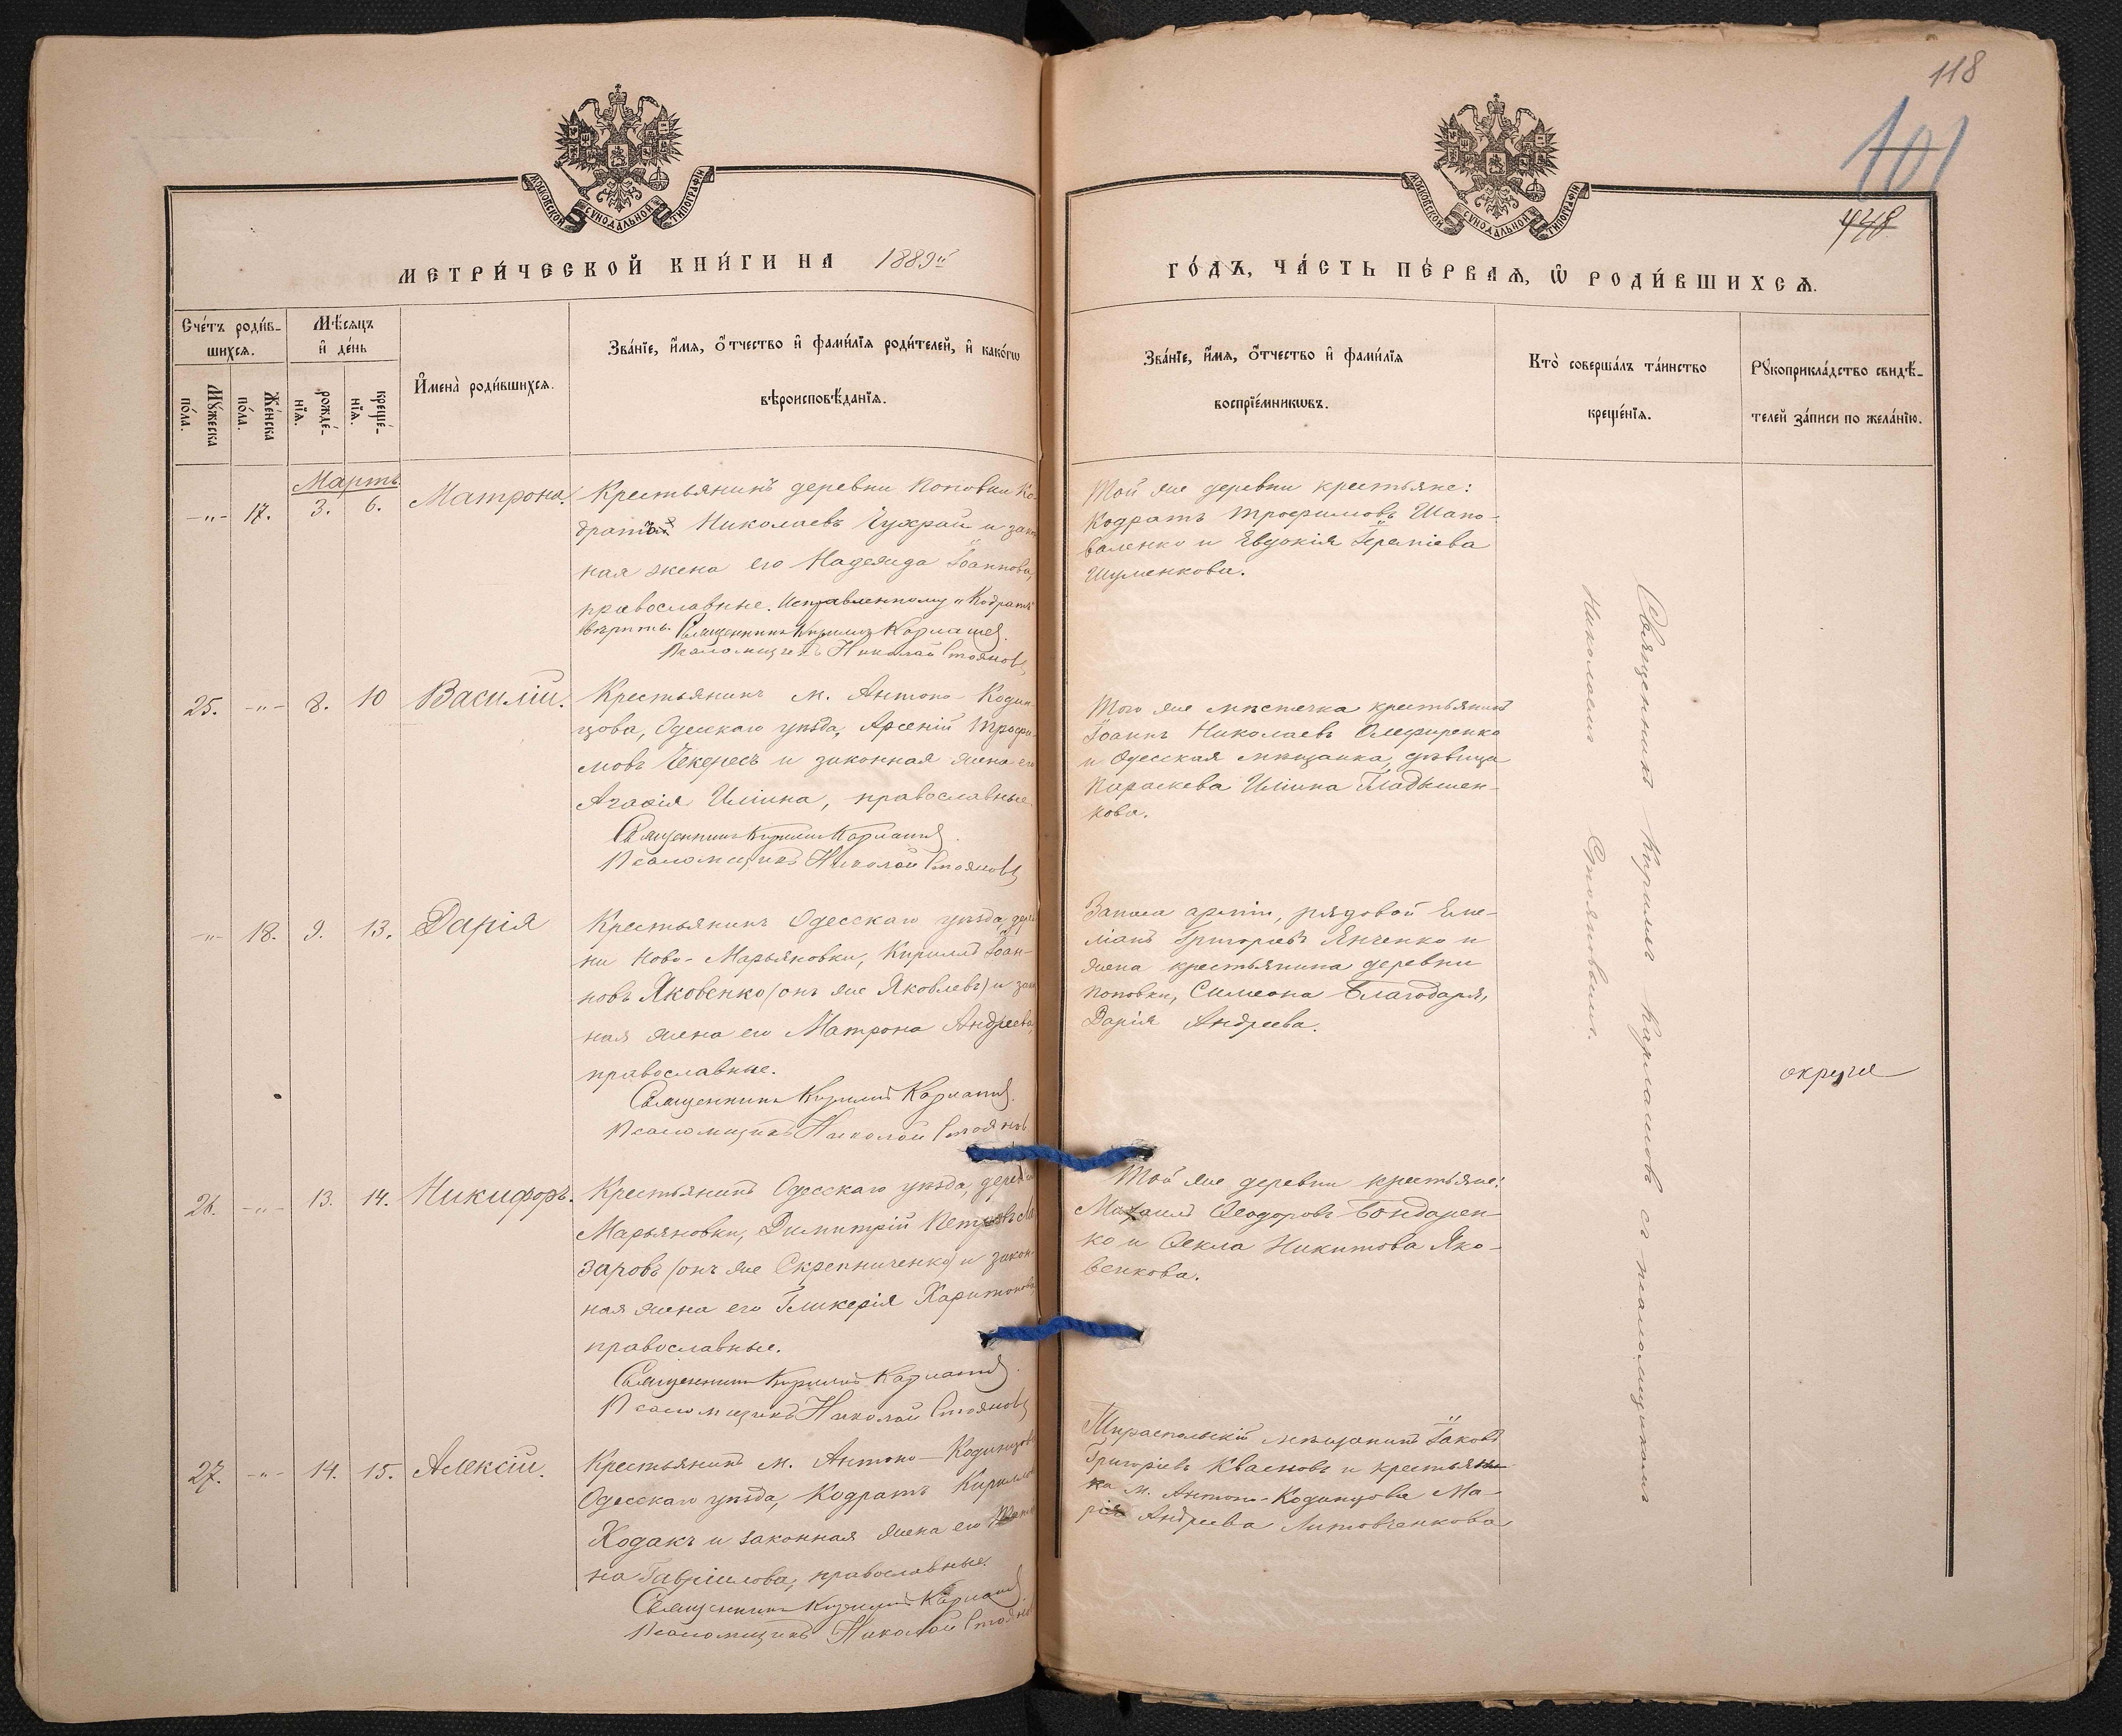 118
101
448
МОСКОВСКОЙ СѴНОДАЛЬНОЙ ТИПОГРАФІИ
МОСКОВСКОЙ СѴНОДАЛЬНОЙ ТИПОГРАФІИ
МЕТРИ́ЧЕСКОЙ КНИ́ГИ НА 1889й
ГО́ДЪ, ЧА́СТЬ ПЕ́РВАѦ, Ѡ҆ РОДИ́ВШИХСѦ.
Сче́тъ роди́в-
шихсѧ.
Мꙋ́жеска по́ла.
Же́нска по́ла.
Мѣ́сѧцъ
и҆ де́нь
рожде́-
нїѧ.
креще́-
нїѧ.
И҆мена̀ роди́вшихсѧ.
Зва́нїе, и҆́мѧ, ѻ҆́тчество и҆ фами́лїѧ роди́телей, и҆ како́гѡ
вѣроисповѣ́данїѧ.
Зва́нїе, и҆́мѧ, ѻ҆́тчество и҆ фами́лїѧ
воспрїе́мникѡвъ.
Кто̀ соверша́лъ та́инство
креще́нїѧ.
Рꙋкоприкла́дство свидѣ́-
телей за́писи по жела́нїю.
Мартъ
-"- 17. 3. 6. Матрона.
Крестьянинъ деревни Поповки Ко-
дратъ Николаевъ Чухрай и закон
ная жена его Надежда Іоаннова,
православные. Исправленному "Кодратъ"
вѣрить. Священникъ Кириллъ
Псаломщикъ Николай Стояновъ
Той же деревни крестьяне:
Кодратъ Трофимовъ Шапо-
валенко и Евдокія
Шуменкова.
25. -"- 8. 10 Василій.
Крестьянинъ м. Антоно-Кодин-
цова, Одесскаго уѣзда, Арсеній Трофи-
мовъ Чекересъ и законная жена его
Агаѳія Иліина, православные.
Священникъ Кириллъ
Псаломщикъ Николай Стояновъ
Того же мѣстечка крестьянинъ
Іоаннъ Николаевъ Олефиренко
и Одесская мѣщанка, дѣвица
Параскева Иліина Гладышен-
кова.
-"- 18. 9. 13. Дарія
Крестьянинъ Одесскаго уѣзда, дерев
ни Ново-Марьяновки, Кириллъ Іоан-
новъ Яковенко (онъ же Яковлевъ) и закон
ная жена его Матрона Андреева
православные.
Священникъ Кириллъ
Псаломщикъ Николай Стояновъ
Запаса арміи, рядовой Еме-
ліанъ Григорьевъ Янченко и
жена крестьянина деревни
Поповки, Симеона Благодаря,
Дарія Андреева.
26. -"- 13. 14. Никифоръ.
Крестьянинъ Одесскаго уѣзда, деревни
Марьяновки, Димитрій Петровъ Ла
заровъ (онъ же Скрепниченко) и закон-
ная жена его Гликерія Харитонова
православные.
Священникъ Кириллъ
Псаломщикъ Николай Стояновъ
Той же деревни крестьяне:
Михаилъ Ѳеодоровъ Бондарен-
ко и Ѳекла Никитова Яко-
венкова.
27. -"- 14. 15. Алексій.
Крестьянинъ м. Антоно-Кодинцова
Одесскаго уѣзда, Кодратъ Кириллов
Ходакъ и законная жена его
на Гавріилова, православные.
Священникъ Кириллъ
Псаломщикъ Николай Стояновъ
Тираспольскій мѣщанинъ Іаковъ
Григоріевъ Квасновъ и крестьян-
ка м. Антоно-Кодинцова Ма-
рія Андреева Литовченкова
Священникъ Кириллъ съ псаломщикомъ
Николаемъ Стояновымъ.